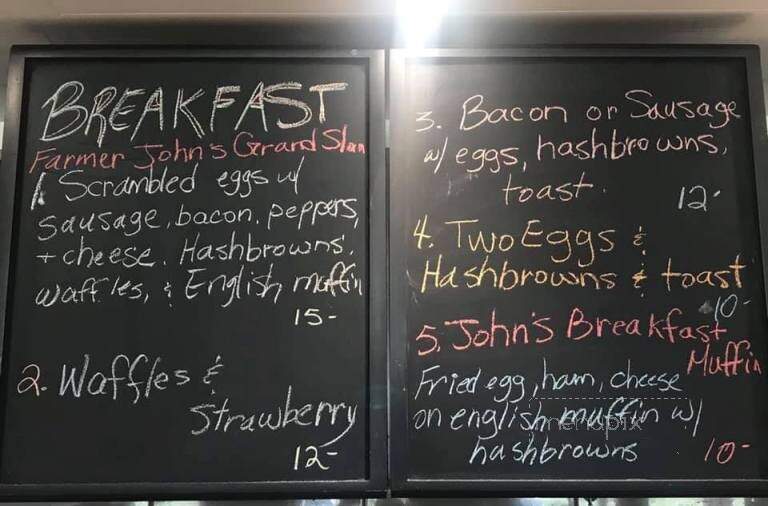 BREAKFAST
Farmer John's Grand Slam
1. Scrambled eggs w/
sausage, bacon, peppers,
+ cheese. Hashbrowns,
waffles, & English muffin
15-
2. Waffles &
Strawberry
12-
3. Bacon or Sausage
w/ eggs, hashbrowns,
toast.
12-
4. Two Eggs &
Hashbrowns & toast
10-
5. John's Breakfast
Muffin
Fried egg, ham, cheese
on english muffin w/
hashbrowns
10-
menupix